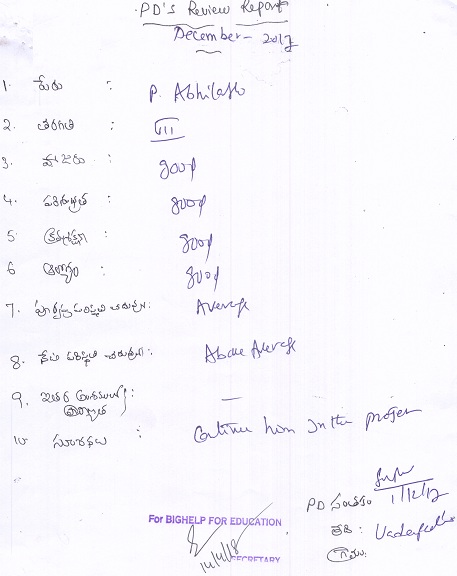 PD's Review Report
December - 2017
1. పేరు : P. Abhilash
2. తరగతి : III
3. హాజరు : good
4. పరిశుభ్రత : good
5 క్రమశిక్షణ : good
6 ఆరోగ్యం : good
7. పూర్వపు పరిస్థితి చదువు : Average
8. నేటి పరిస్థితి చదువు : Above Average
9. ఇతర : —
10 సూచనలు : Continue him in the project
PD సంతకం
1/12/17
తేది :
గ్రామం:
For BIGHELP FOR EDUCATION
14/4/18
SECRETARY